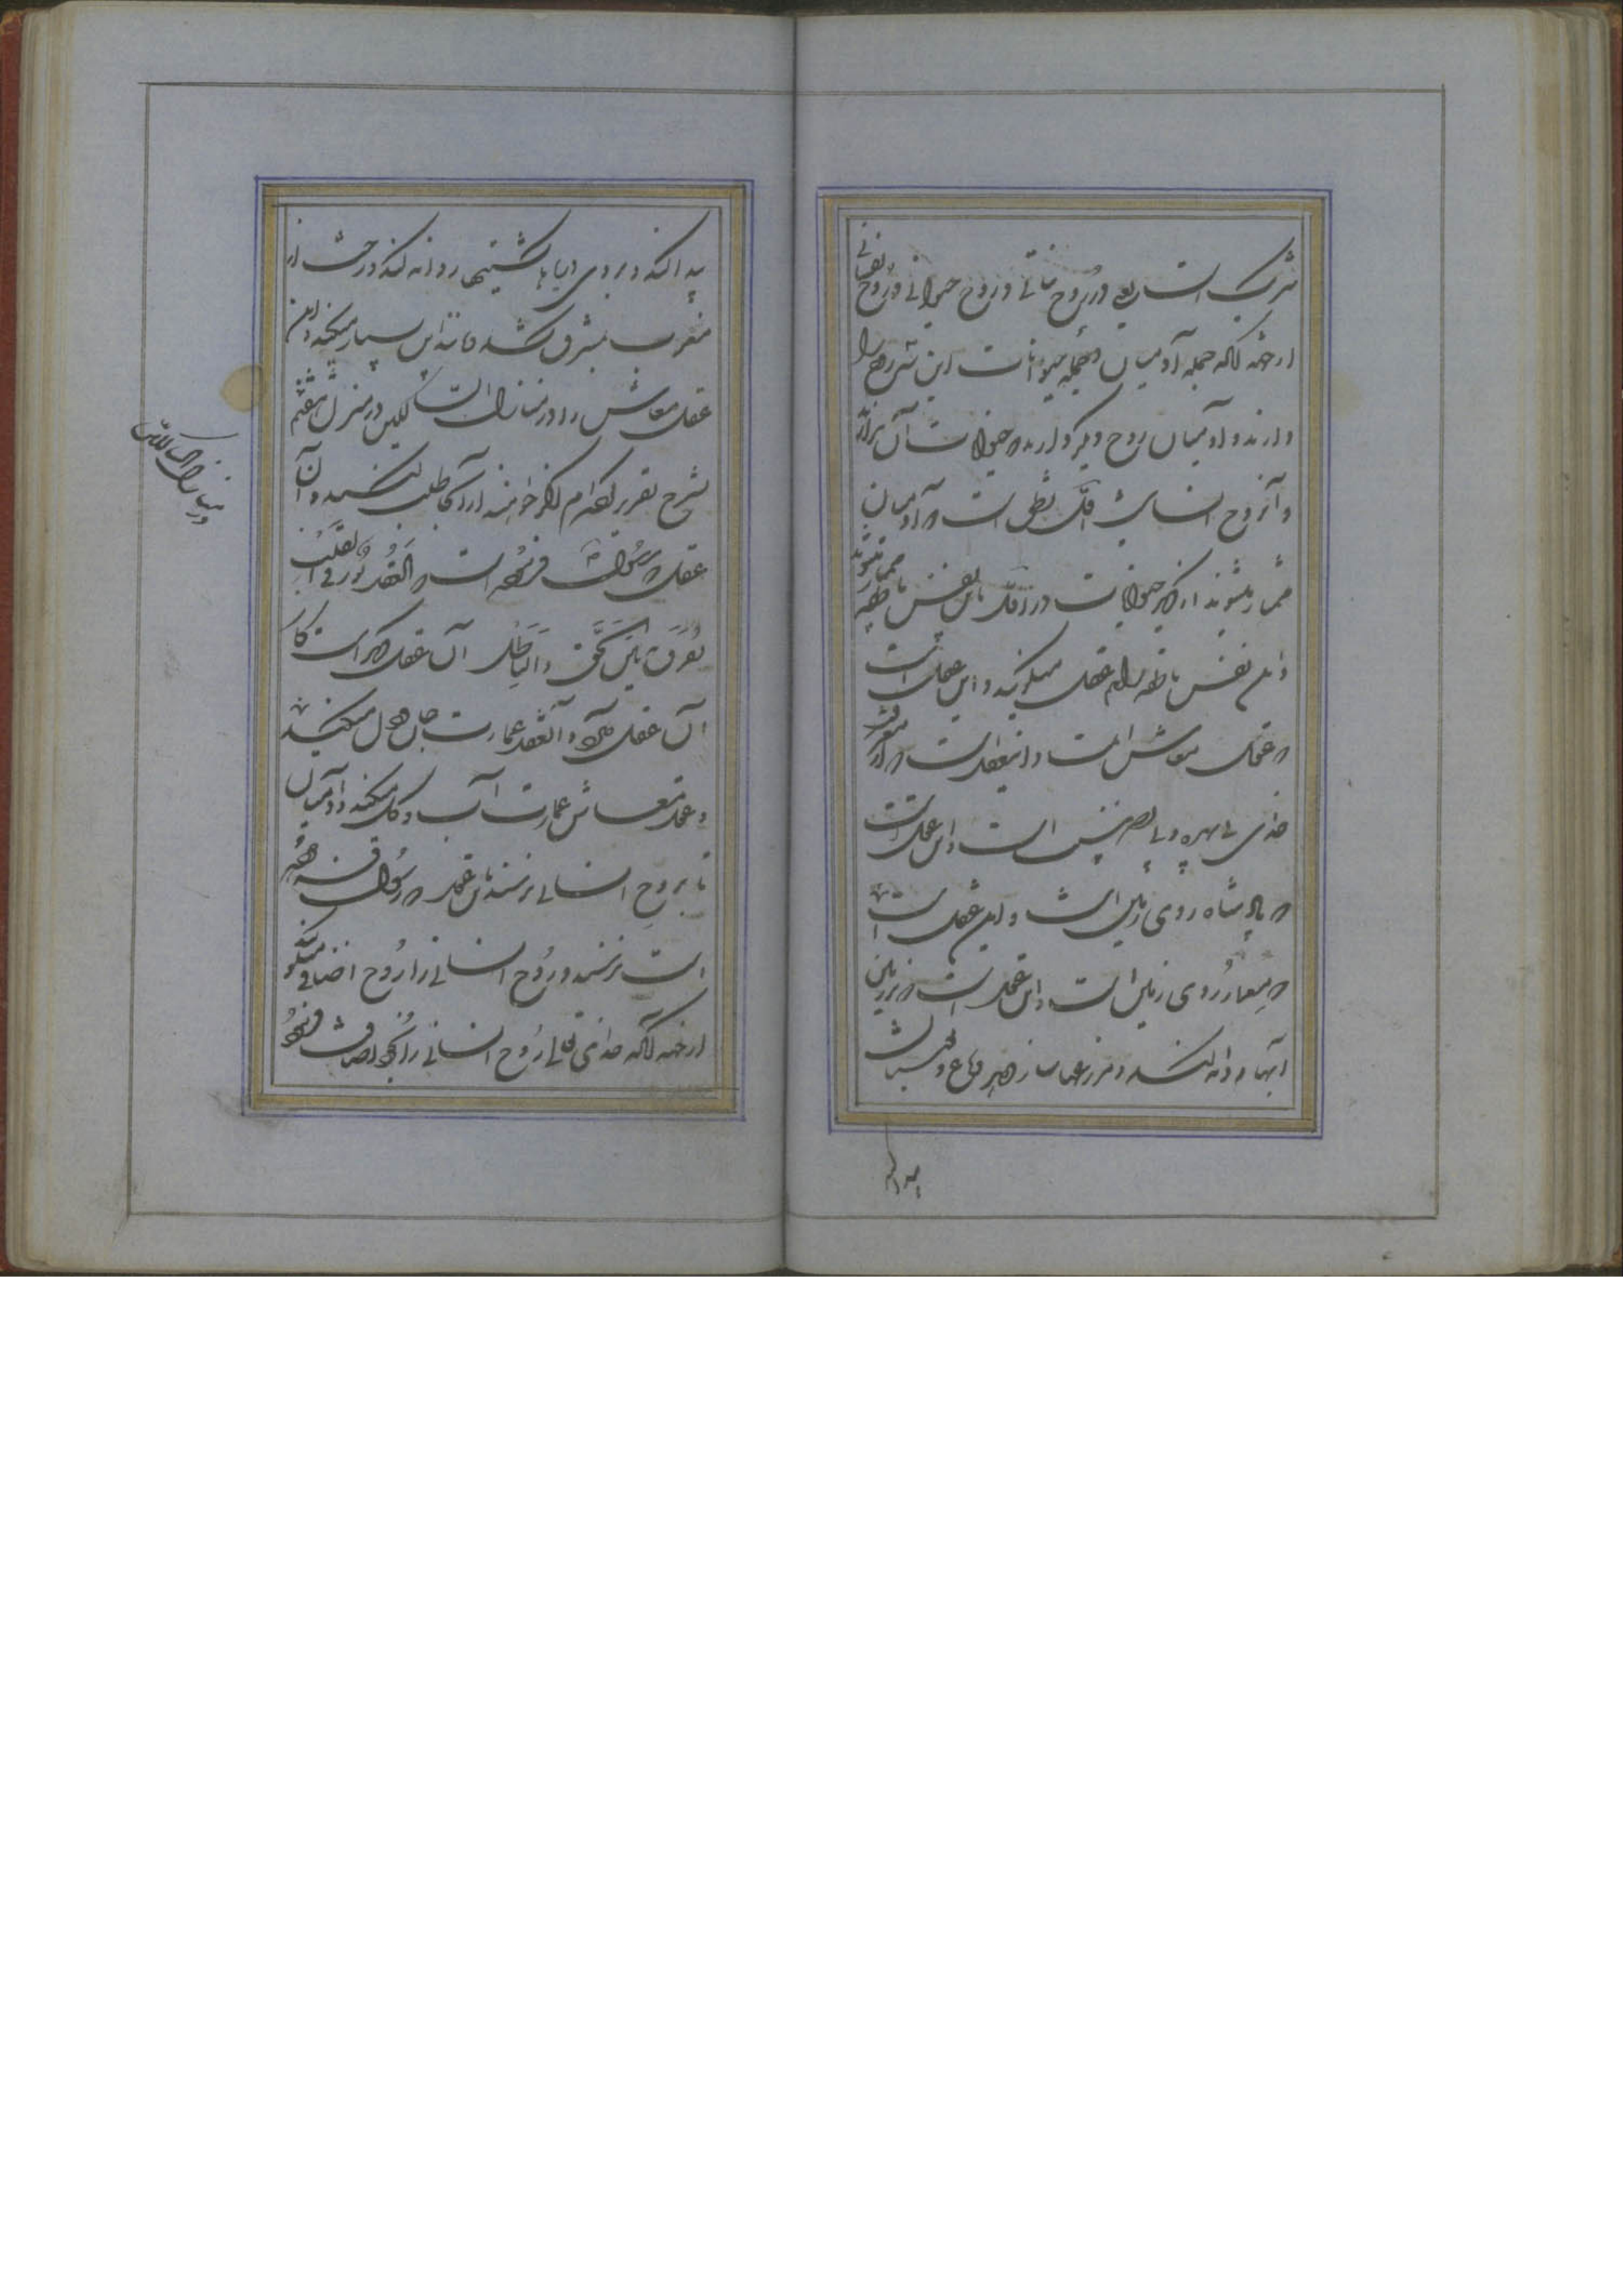 شریک است یعنی در روح نباتی و روح حیوانی و روح نفسانی
از جهة آنکه جمله آدمیان و جمله حیوانات این سه روح را
دارند و آدمیان روح دیگر دارند که حیوانات آن ندارند
و آن روح انسانی است اول نطق است که آدمیان
ممتاز میشوند از دیگر حیوانات در اول باین نفس ناطقه ممتاز میشوند
و این نفس ناطقه را هم عقل میگویند و این عقلی است
که عقل معاش است و این عقل است که از معرفت
خدای بی بهره و بی نصیب است و این عقل است
که پادشاه روی زمین است و این عقل است
که معمار روی زمین است و این عقل است که بر زمین
آبها روانه کند و مزرعها سازد و باغ و بستان
پیدا کند
پیدا کند و بر روی دریاها کشتیها روانه کند و رخت از
مغرب بمشرق کشد مانند این بسیار میکند و این
عقل معاش را در منازل السالکین در منزل هفتم
بشرح تقریر کرده‌ام اگر خواهند از آنجا طلب کنند و آن
عقل که رسول فرموده است که العقل نور فی القلب
یفرق بین الحق و الباطل آن عقل دیگر است
آن عقل معاد و آن عقل عمارت جان و دل میکند
و عقل معاش عمارت آب و گل میکند و آدمیان
تا بروح انسانی نرسند باین عقل که رسول فرموده
است نرسند و روح انسانی را روح اضافی میگویند
از جهة آنکه خدای تعالی روح انسانی را بخود اضافت فرمود
در منازل السالکین